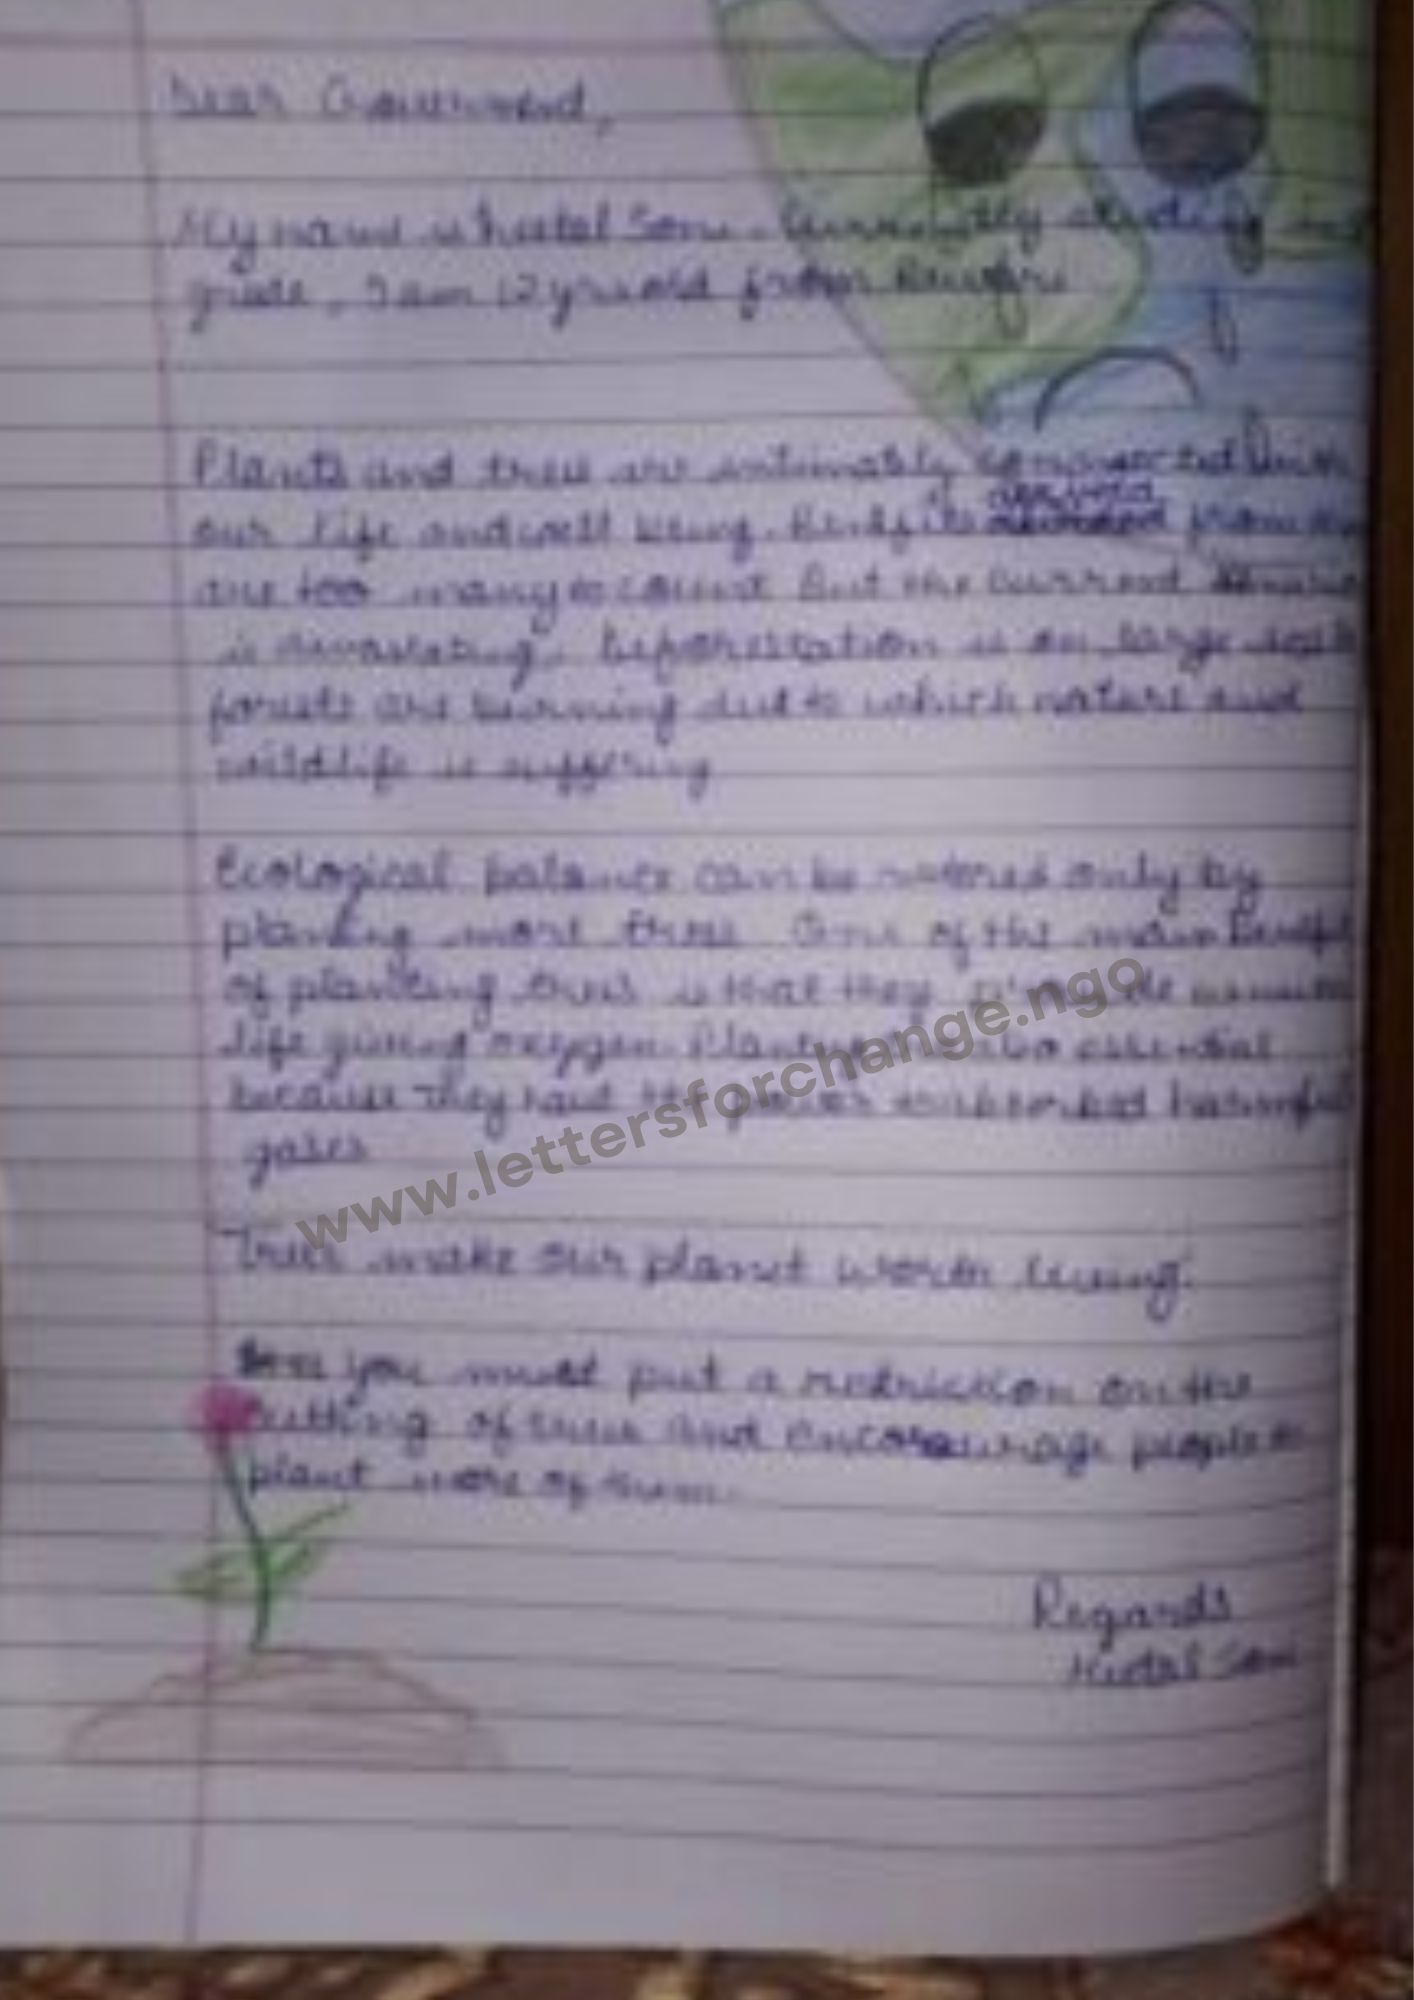 Dear Government,
My name is Soni. Currently studing in
grade, I am 12 yrs old from
Plants and trees are intimately connected with
our life and well being. Benefits derived from
are too many to count But the current
is devastating, Deforestation is on large scale
forests are burning due to which nature and
wildlife is suffering
Ecological balance can be restored only by
planting more trees One of the main benefit
of planting trees is that they provide us
life giving oxygen. also essential
because they have the power harmful
gases
Trees make our planet worth living.
you must put a restriction on the
cutting of trees and encourage people to
plant more of them.
Regards
Soni
www.lettersforchange.ngo